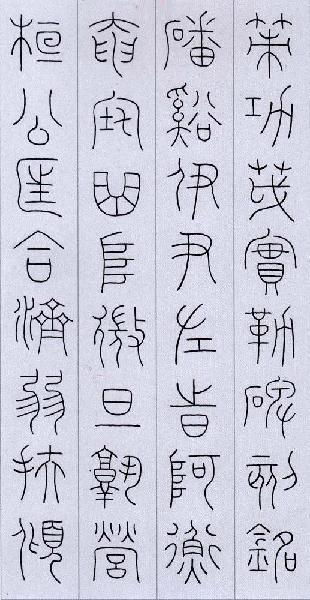 策功茂實勒碑刻銘
磻谿伊尹佐時阿衡
奄宅曲阜微旦孰營
桓公匡合濟弱扶傾